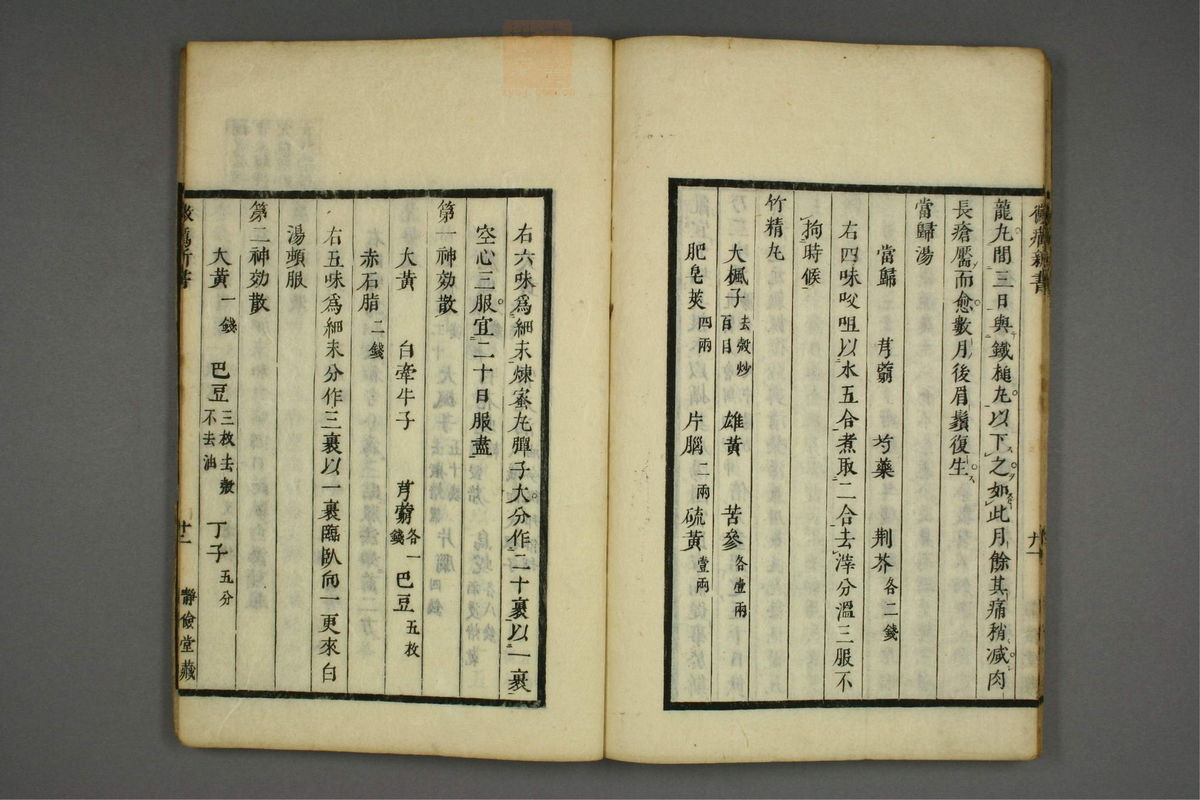 黴癘新書
龍丸間三日與鐵槌丸以下之如此月餘其痛稍減肉
長瘡靨而愈數月後眉鬚復生
當歸湯
當歸 芎藭 芍藥 荆芥各二錢
右四味㕮咀以水五合煮取二合去滓分溫三服不
拘時候
竹精丸
大楓子去殻炒百日 雄黃 苦參各壹兩
肥皂莢四兩 片腦二兩 硫黃壹兩
右六味爲細末煉蜜丸彈子大分作二十裹以一裹
空心三服宜二十日服盡
第一神効散
大黃 白牽牛子 芎藭各一錢 巴豆五枚
赤石脂二錢
右五味爲細末分作三裹以一裹臨臥向一更來白
湯頓服
第二神効散
大黃一錢 巴豆三枚去殻不去油 丁子五分
廿二 靜儉堂藏